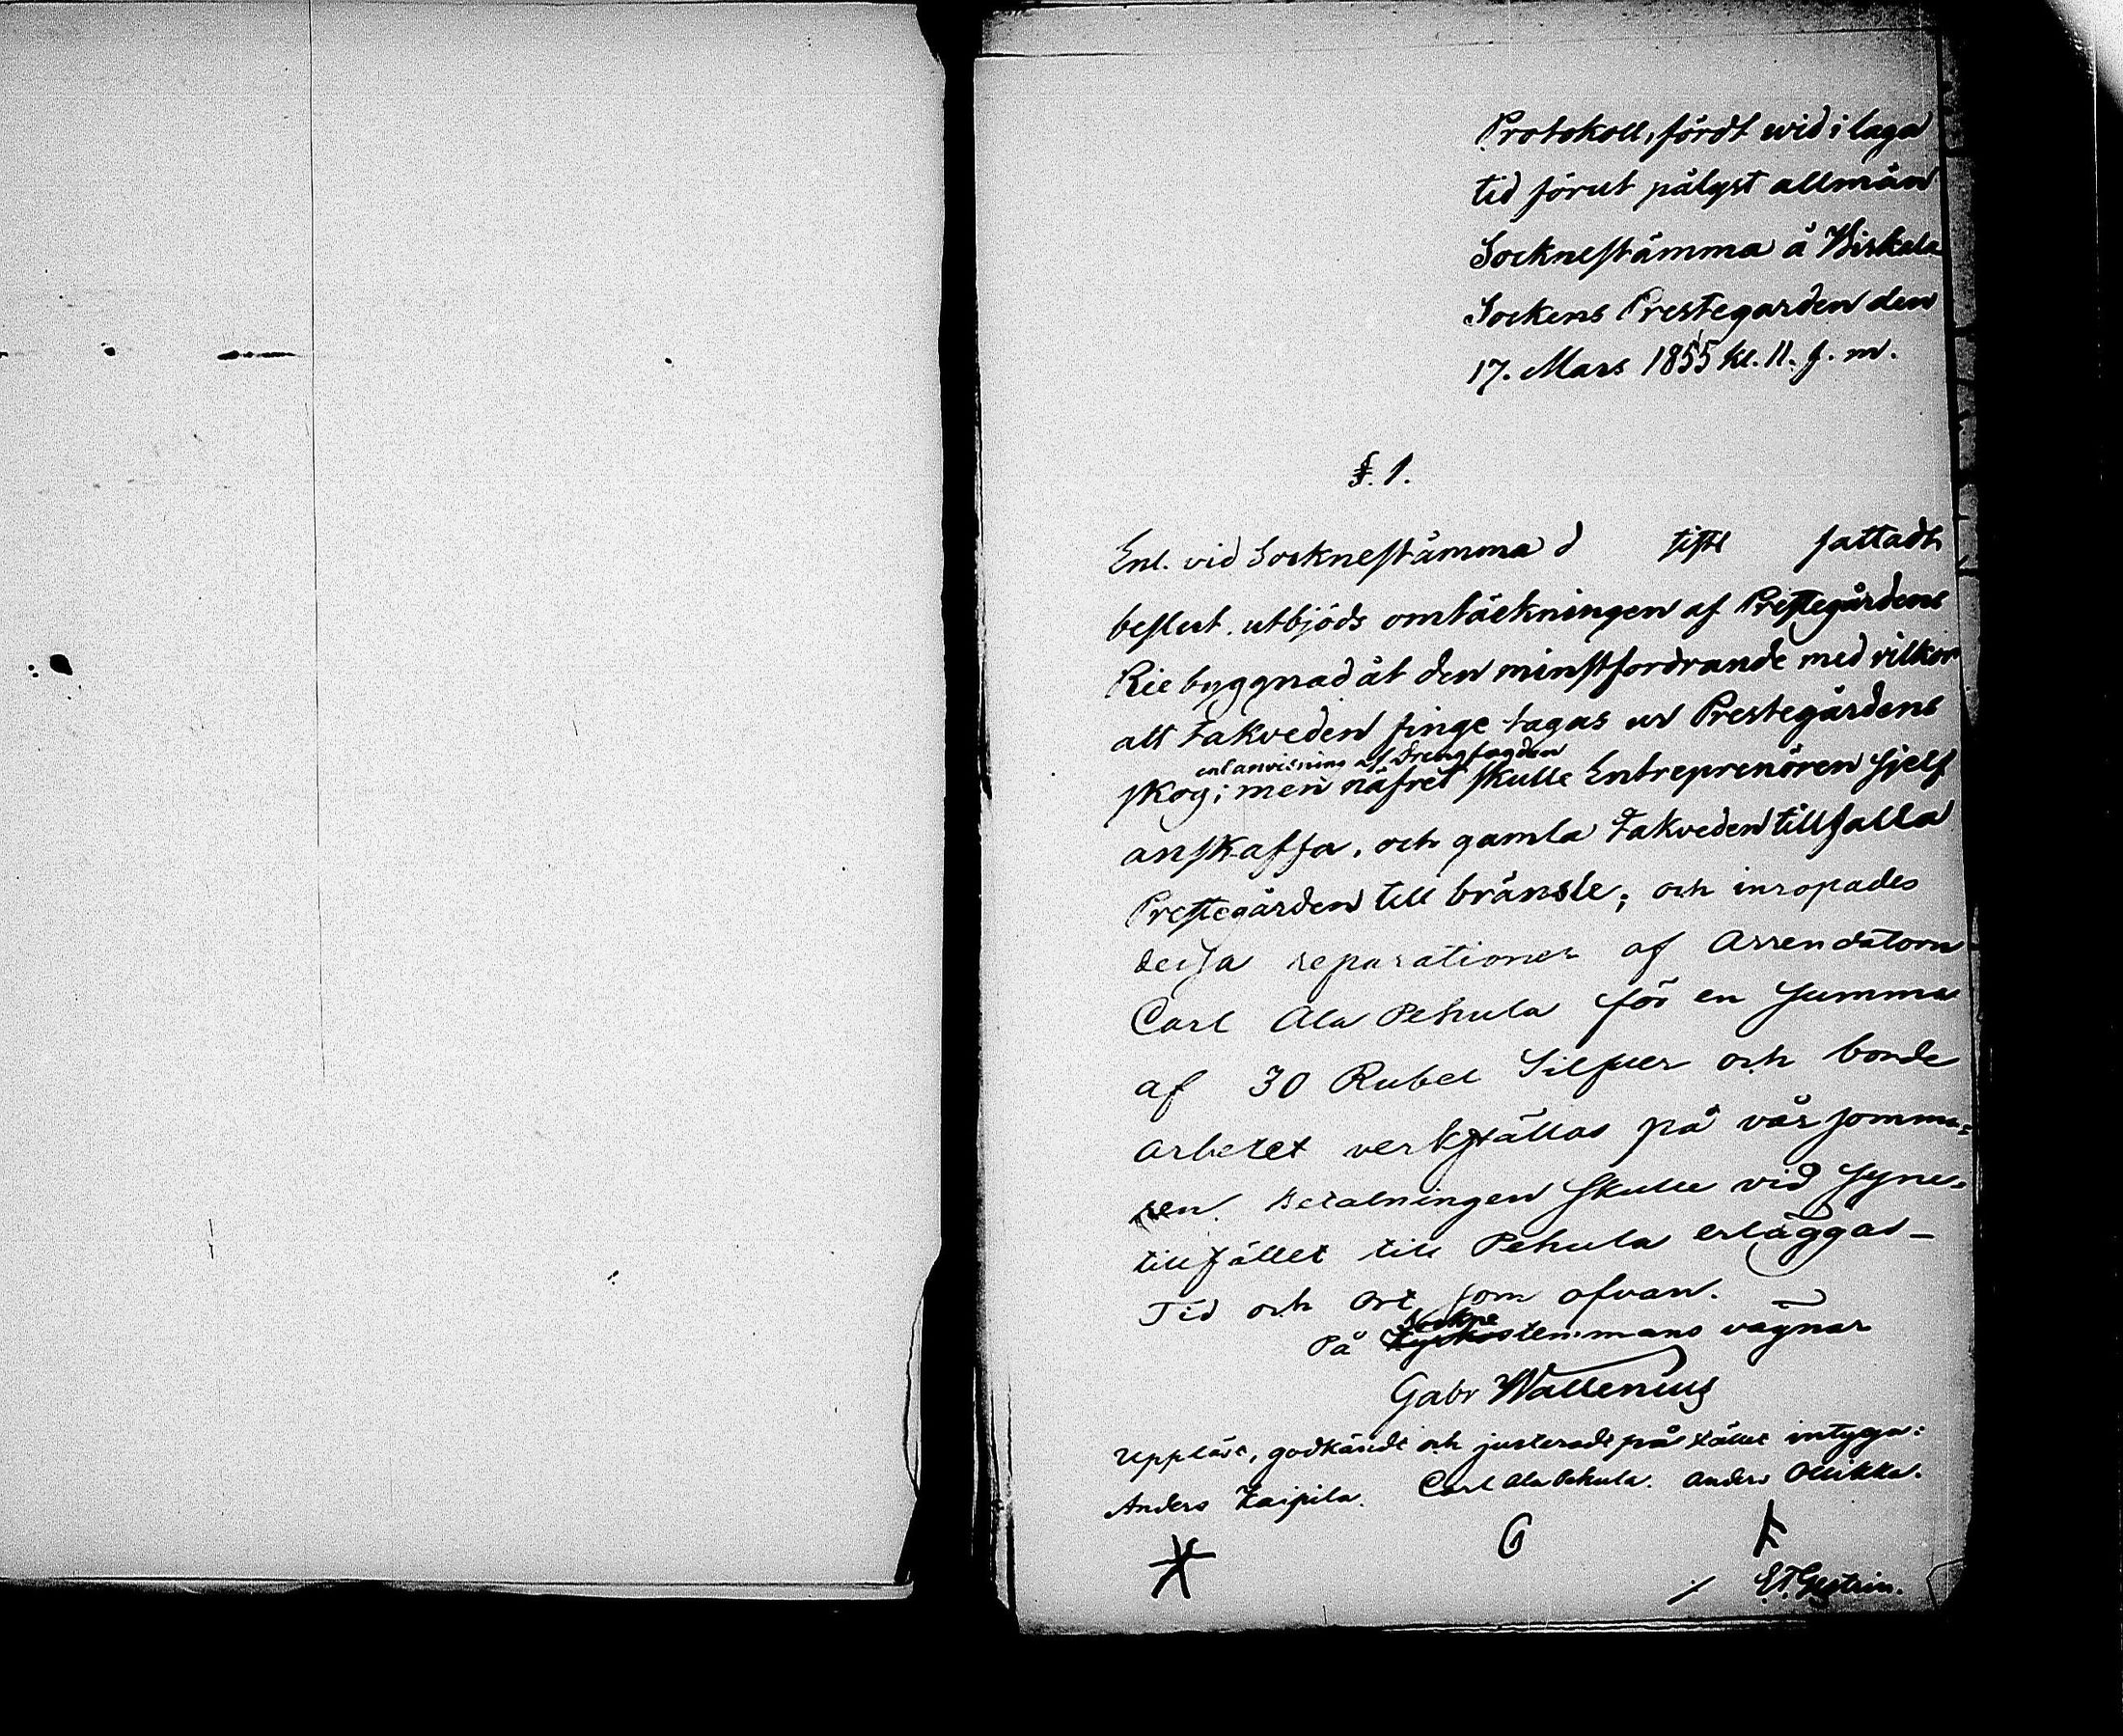 Protokoll, fördt wid i laga
tid förut pålyst allmän
Socknestämma å Wirkala
Sockens Prestegarden den
17. Mars 1855 kl. 11. f. m.
§. 1.
Enl. vid Socknestämma d sistl fattadt
beslut utbjöds omtäckningen af Prestegårdens
Rie byggnad åt den minstfordrande med vilkor
att takveden finge tagas ur Prestegårdens
enl anvisning af
skog; men näfret skulle Entreprenören sjelf
anskaffa, och gamla takveden tillfalla
Prestegården till bränsle; och inropades
dessa reparationer af Arrendatorn
Carl Ala Pehula för en summa
af 30 Rubel Silfver och borde
arbetet verkställas på vår somma=
ren. Betalningen skulle vid syne=
tillfället till Pehula erläggas_
Tid och Ort som ofvan.
På Sockne stemmans vägnar
Gabr Wallenius
Uppläst, godkändt och justerade på stället intyga:
Anders Kaipila. Carl Ala Pehula. Anders Ollikka.